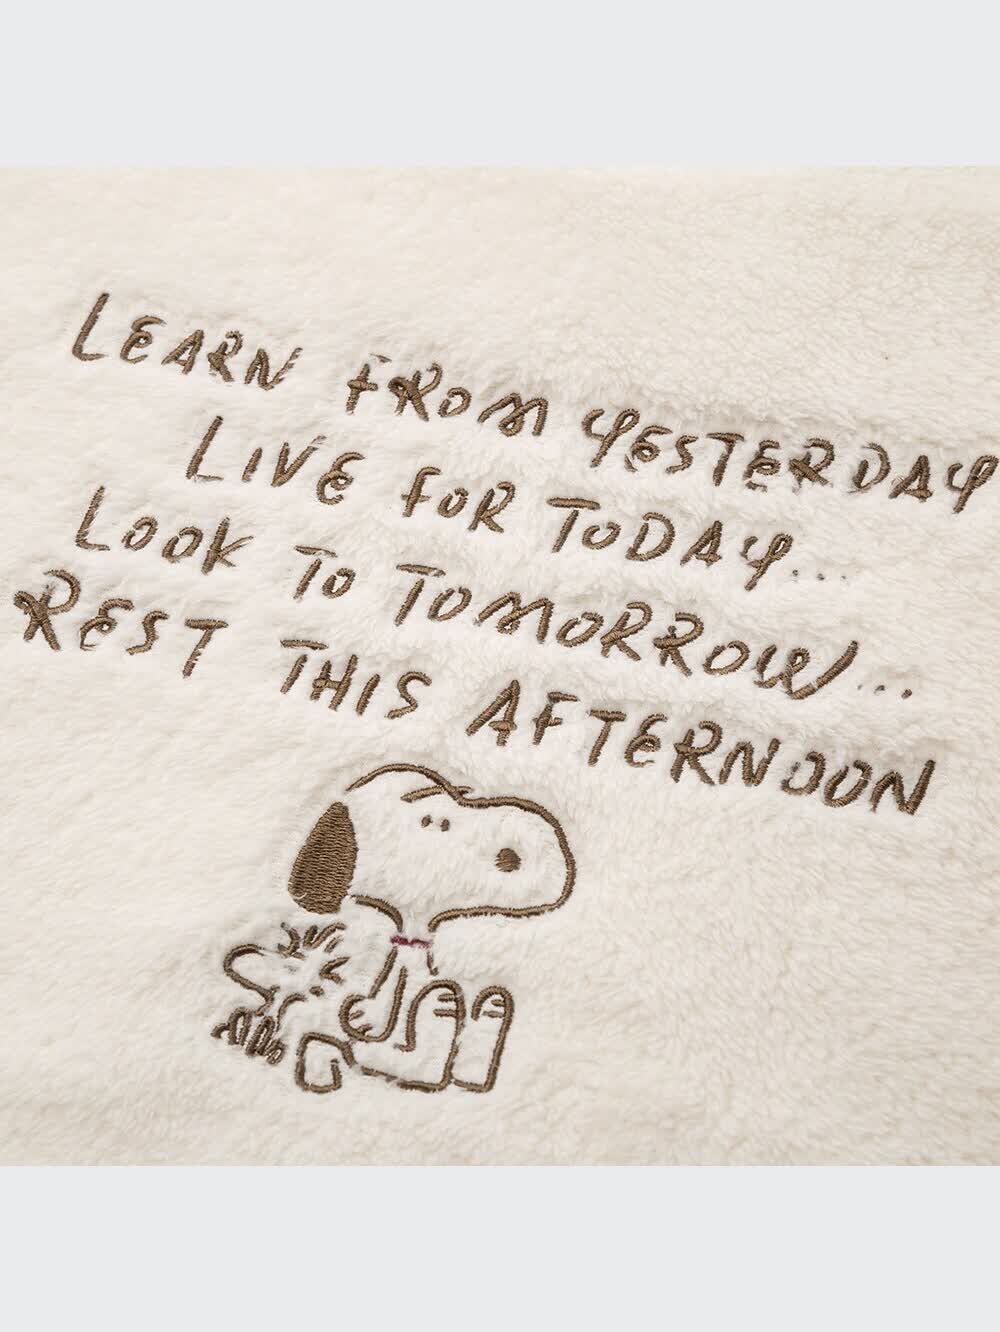 LEARN FROM YESTERDAY
LIVE FOR TODAY...
LOOK TO TOMORROW...
REST THIS AFTERNOON